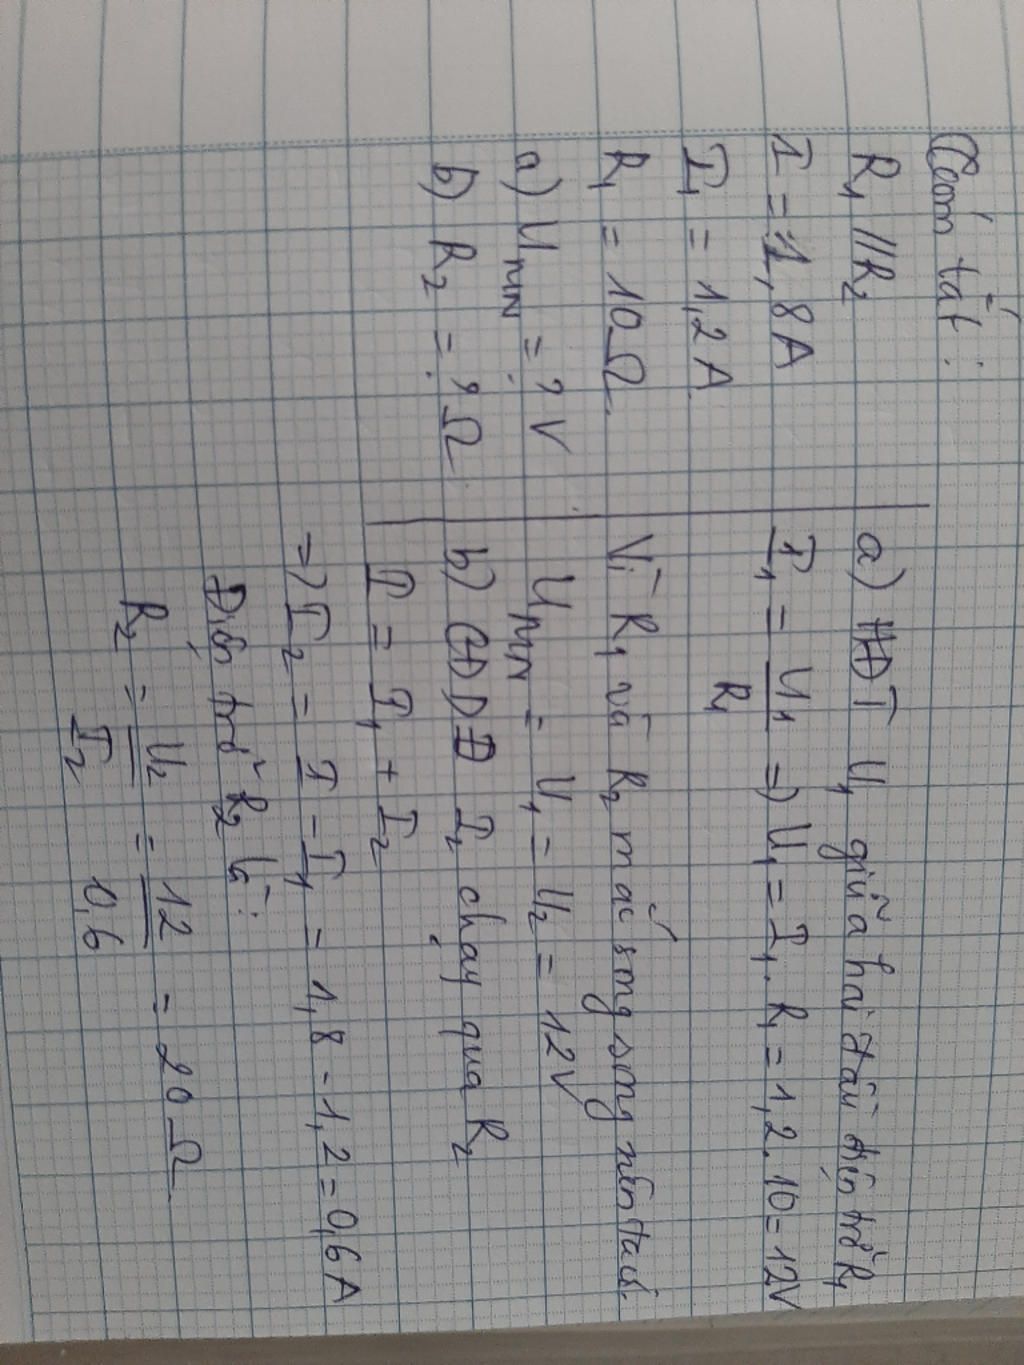 Tóm tắt:
R1 // R2
I = 1,8A
I1 = 1,2A
R1 = 10Ω
a) UMN = ? V
b) R2 = ? Ω
a) HĐT U1 giữa hai đầu điện trở R1
I1 = U1/R1 => U1 = I1 . R1 = 1,2 . 10 = 12V
Vì R1 và R2 mắc song song nên ta có:
UMN = U1 = U2 = 12V
b) CĐDĐ I2 chạy qua R2
I = I1 + I2
=> I2 = I - I1 = 1,8 - 1,2 = 0,6A
Điện trở R2 là:
R2 = U2/I2 = 12/0,6 = 20Ω